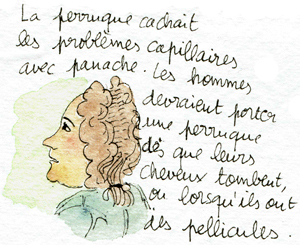 La perruque cachait
les problèmes capillaires
avec panache. Les hommes
devraient porter
une perruque
dès que leurs
cheveux tombent,
ou lorsqu'ils ont
des pellicules.